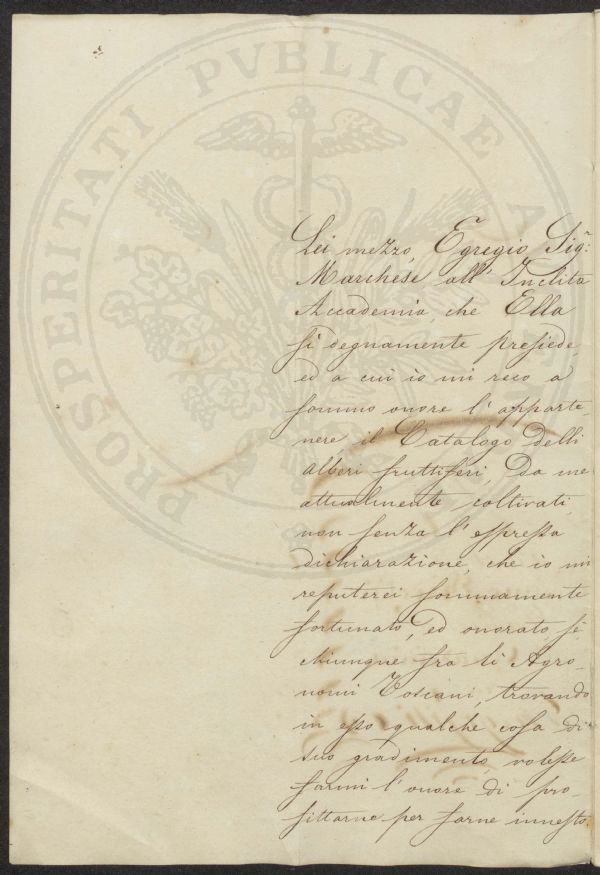 PROSPERITATI PVBLICAE A
Lei mezzo, Egregio Sig.r
Marchese all' Inclita
Accademia, che Ella
sì degnamente presiede,
ed a cui io mi reco a
sommo onore l' apparte-
nere, il Catalogo delli
alberi fruttiferi, da me
attualmente coltivati,
non senza l' espressa
dichiarazione, che io mi
reputerei sommamente
fortunato, ed onorato, se
chiunque fra li Agro-
nomi Toscani, trovando
in esso qualche cosa di
suo gradimento, volesse
farmi l' onore di pro-
fittarne per farne innesto.